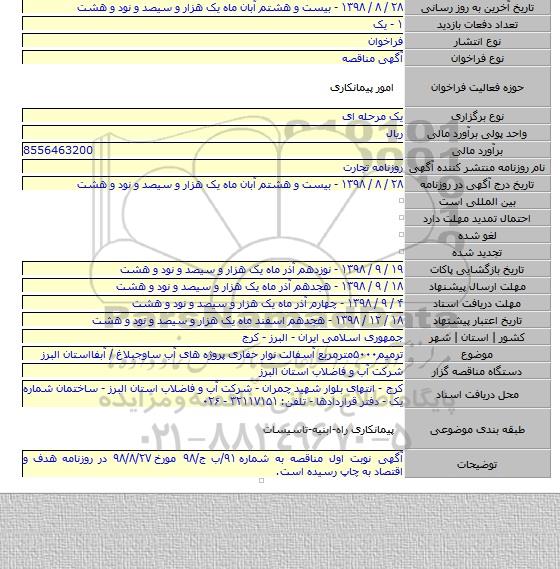 تاریخ آخرین به روز رسانی ۲۸ / ۸ / ۱۳۹۸ - بیست و هشتم آبان ماه یک هزار و سیصد و نود و هشت
تعداد دفعات بازدید ۱ - یک
نوع انتشار فراخوان
نوع فراخوان آگهی مناقصه
حوزه فعالیت فراخوان امور پیمانکاری
نوع برگزاری یک مرحله ای
واحد پولی برآورد مالی ریال
برآورد مالی 8556463200
نام روزنامه منتشر کننده آگهی روزنامه تجارت
تاریخ درج آگهی در روزنامه ۲۸ / ۸ / ۱۳۹۸ - بیست و هشتم آبان ماه یک هزار و سیصد و نود و هشت
بین المللی است
احتمال تمدید مهلت دارد
لغو شده
تجدید شده
تاریخ بازگشایی پاکات ۱۹ / ۹ / ۱۳۹۸ - نوزدهم آذر ماه یک هزار و سیصد و نود و هشت
مهلت ارسال پیشنهاد ۱۸ / ۹ / ۱۳۹۸ - هجدهم آذر ماه یک هزار و سیصد و نود و هشت
مهلت دریافت اسناد ۴ / ۹ / ۱۳۹۸ - چهارم آذر ماه یک هزار و سیصد و نود و هشت
تاریخ اعتبار پیشنهاد ۱۸ / ۱۲ / ۱۳۹۸ - هجدهم اسفند ماه یک هزار و سیصد و نود و هشت
کشور | استان | شهر جمهوری اسلامی ایران - البرز - کرج
موضوع ترمیم۵۰۰۰مترمربع آسفالت نوار حفاری پروژه های آب ساوجبلاغ / آبفااستان البرز
دستگاه مناقصه گزار شرکت آب و فاضلاب استان البرز
محل دریافت اسناد کرج - انتهای بلوار شهید چمران - شرکت آب و فاضلاب استان البرز - ساختمان شماره
یک - دفتر قراردادها - تلفن: ۳۲۱۱۷۱۵۱ - ۰۲۶
طبقه بندی موضوعی پیمانکاری راه-ابنیه-تاسیسات
توضیحات آگهی نوبت اول مناقصه به شماره ۹۱/ب ج/۹۸ مورخ ۹۸/۸/۲۷ در روزنامه هدف و
اقتصاد به چاپ رسیده است.
۰۲۱-۸۸۳۴۹۶۷۰-۵